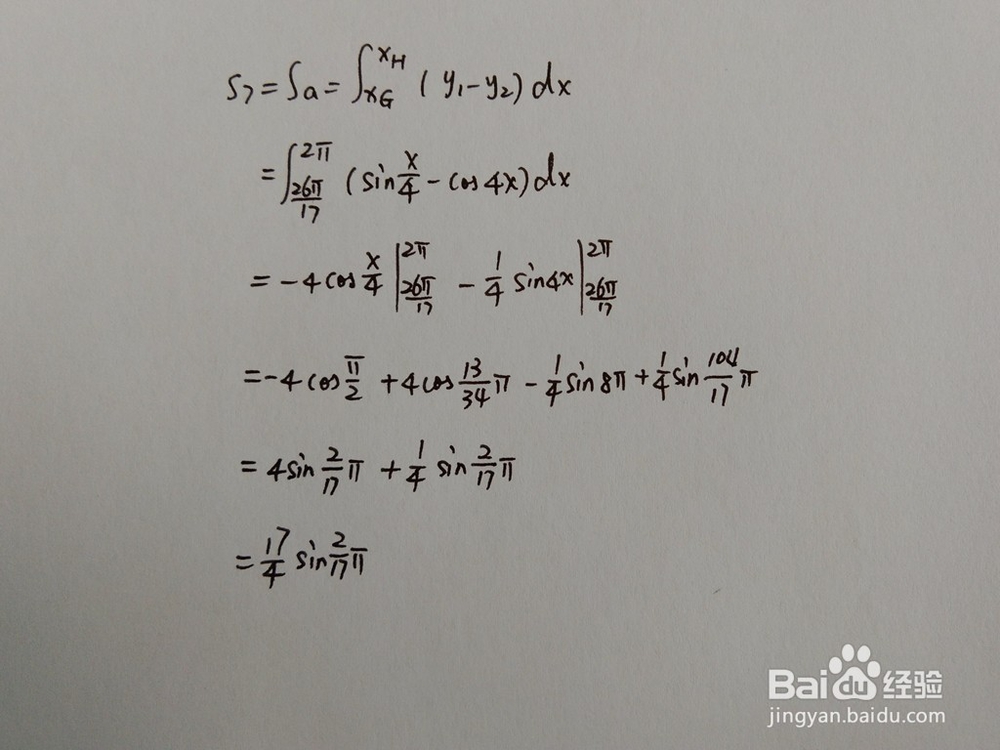 S₇ = Sa = ∫_{x_G}^{x_H} (y₁-y₂) dx
= ∫_{26π/17}^{2π} (sin x/4 - cos 4x) dx
= -4 cos x/4 |_{26π/17}^{2π} - 1/4 sin4x |_{26π/17}^{2π}
= -4 cos π/2 + 4 cos 13/34 π - 1/4 sin 8π + 1/4 sin 104/17 π
= 4 sin 2/17 π + 1/4 sin 2/17 π
= 17/4 sin 2/17 π
Baidu 经验
jingyan.baidu.com